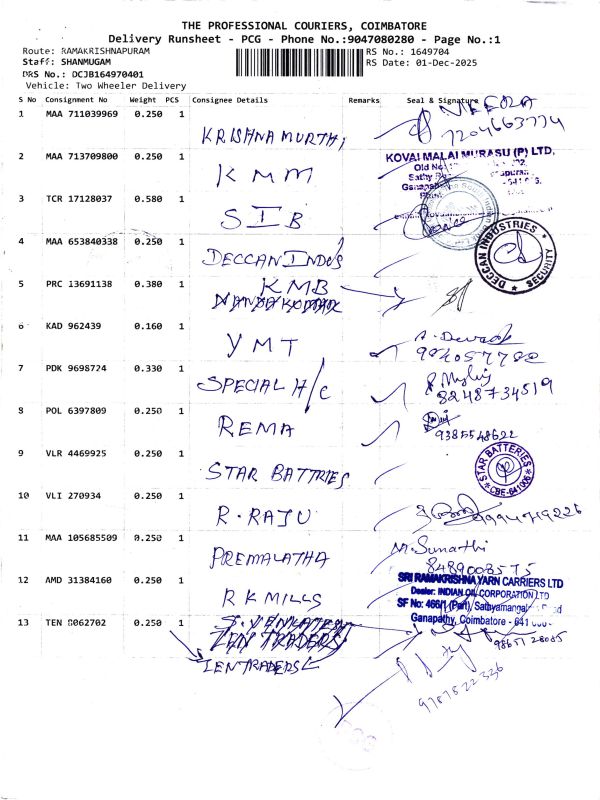 THE PROFESSIONAL COURIERS, COIMBATORE
Delivery Runsheet - PCG - Phone No.:9047080280 - Page No.:1
Route: RAMAKRISHNAPURAM
RS No.: 1649704
Staff: SHANMUGAM
RS Date: 01-Dec-2025
DRS No.: DCJB164970401
Vehicle: Two Wheeler Delivery
S No Consignment No Weight PCS Consignee Details Remarks Seal & Signature
1 MAA 711039969 0.250 1 KRISHNA MURTHI
7204663774
2 MAA 713709800 0.250 1 KMM
KOVAI MALAI MURASU (P) LTD.
Old No
Sathy
3 TCR 17128037 0.580 1 SIB
4 MAA 653840338 0.250 1 DECCAN INDUS
DECCAN INDUSTRIES
SECURITY
5 PRC 13691138 0.380 1 KMB
6 KAD 962439 0.160 1 YMT
A. Devad
7 PDK 9698724 0.330 1 SPECIAL H/C
8248734519
8 POL 6397809 0.250 1 REMA
9385548622
9 VLR 4469925 0.250 1 STAR BATTRIES
STAR BATTERIES
CBE-641006
10 VLI 270934 0.250 1 R. RAJU
9994719226
11 MAA 105685509 0.250 1 PREMALATHA
M. Sumathi
8489008575
12 AMD 31384160 0.250 1 RK MILLS
SRI RAMAKRISHNA YARN CARRIERS LTD
Dealer: INDIAN OIL CORPORATION LTD
SF No: 466/1 (Part), Sathyamangal
Ganapathy, Coimbatore - 641
13 TEN 8062702 0.250 1 S. VENKATESH
ZEN TRADERS
9865728085
ZEN TRADERS
9787522326